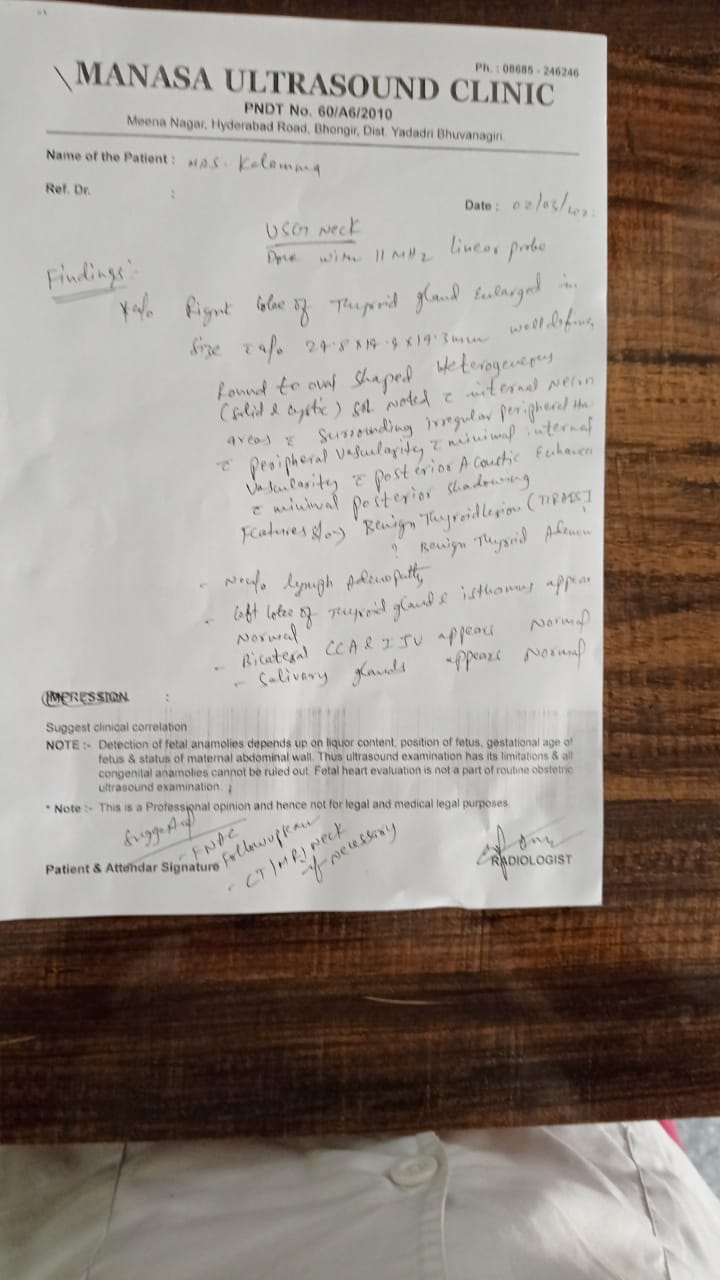 Ph. : 08685 - 246246
MANASA ULTRASOUND CLINIC
PNDT No. 60/A6/2010
Meena Nagar, Hyderabad Road, Bhongir, Dist. Yadadri Bhuvanagiri
Name of the Patient : Mrs. Kalamma
Ref. Dr. :
Date : 02/03/202
USG Neck
Done with 11 MHz linear probe
Findings :
Right lobe of Thyroid gland Enlarged in
size 19.3mm well define
Round to oval shaped Heterogeneous
(solid & cystic) SOL Noted c internal necro
areas c surrounding irregular peripheral
c peripheral vascularity c minimal internal
vascularity c posterior Acoustic Enhancen
c minimal posterior shadowing
Features s/o Benign Thyroid lesion (TIRADS
? Benign Thyroid Adenom
- No e/o lymph Adenopathy
- Left lobe of Thyroid gland & isthomus appear
Normal
- Bilateral CCA & IJV appears Normal
- Salivary glands appears Normal
IMPRESSION :
Suggest clinical correlation
NOTE :- Detection of fetal anamolies depends up on liquor content, position of fetus, gestational age of
fetus & status of maternal abdominal wall. Thus ultrasound examination has its limitations & all
congenital anamolies cannot be ruled out. Fetal heart evaluation is not a part of routine obstetric
ultrasound examination.
* Note :- This is a Professional opinion and hence not for legal and medical legal purposes.
Suggested
- FNAC
Followup
- CT/MRI Neck
if necessary
Patient & Attendar Signature
RADIOLOGIST